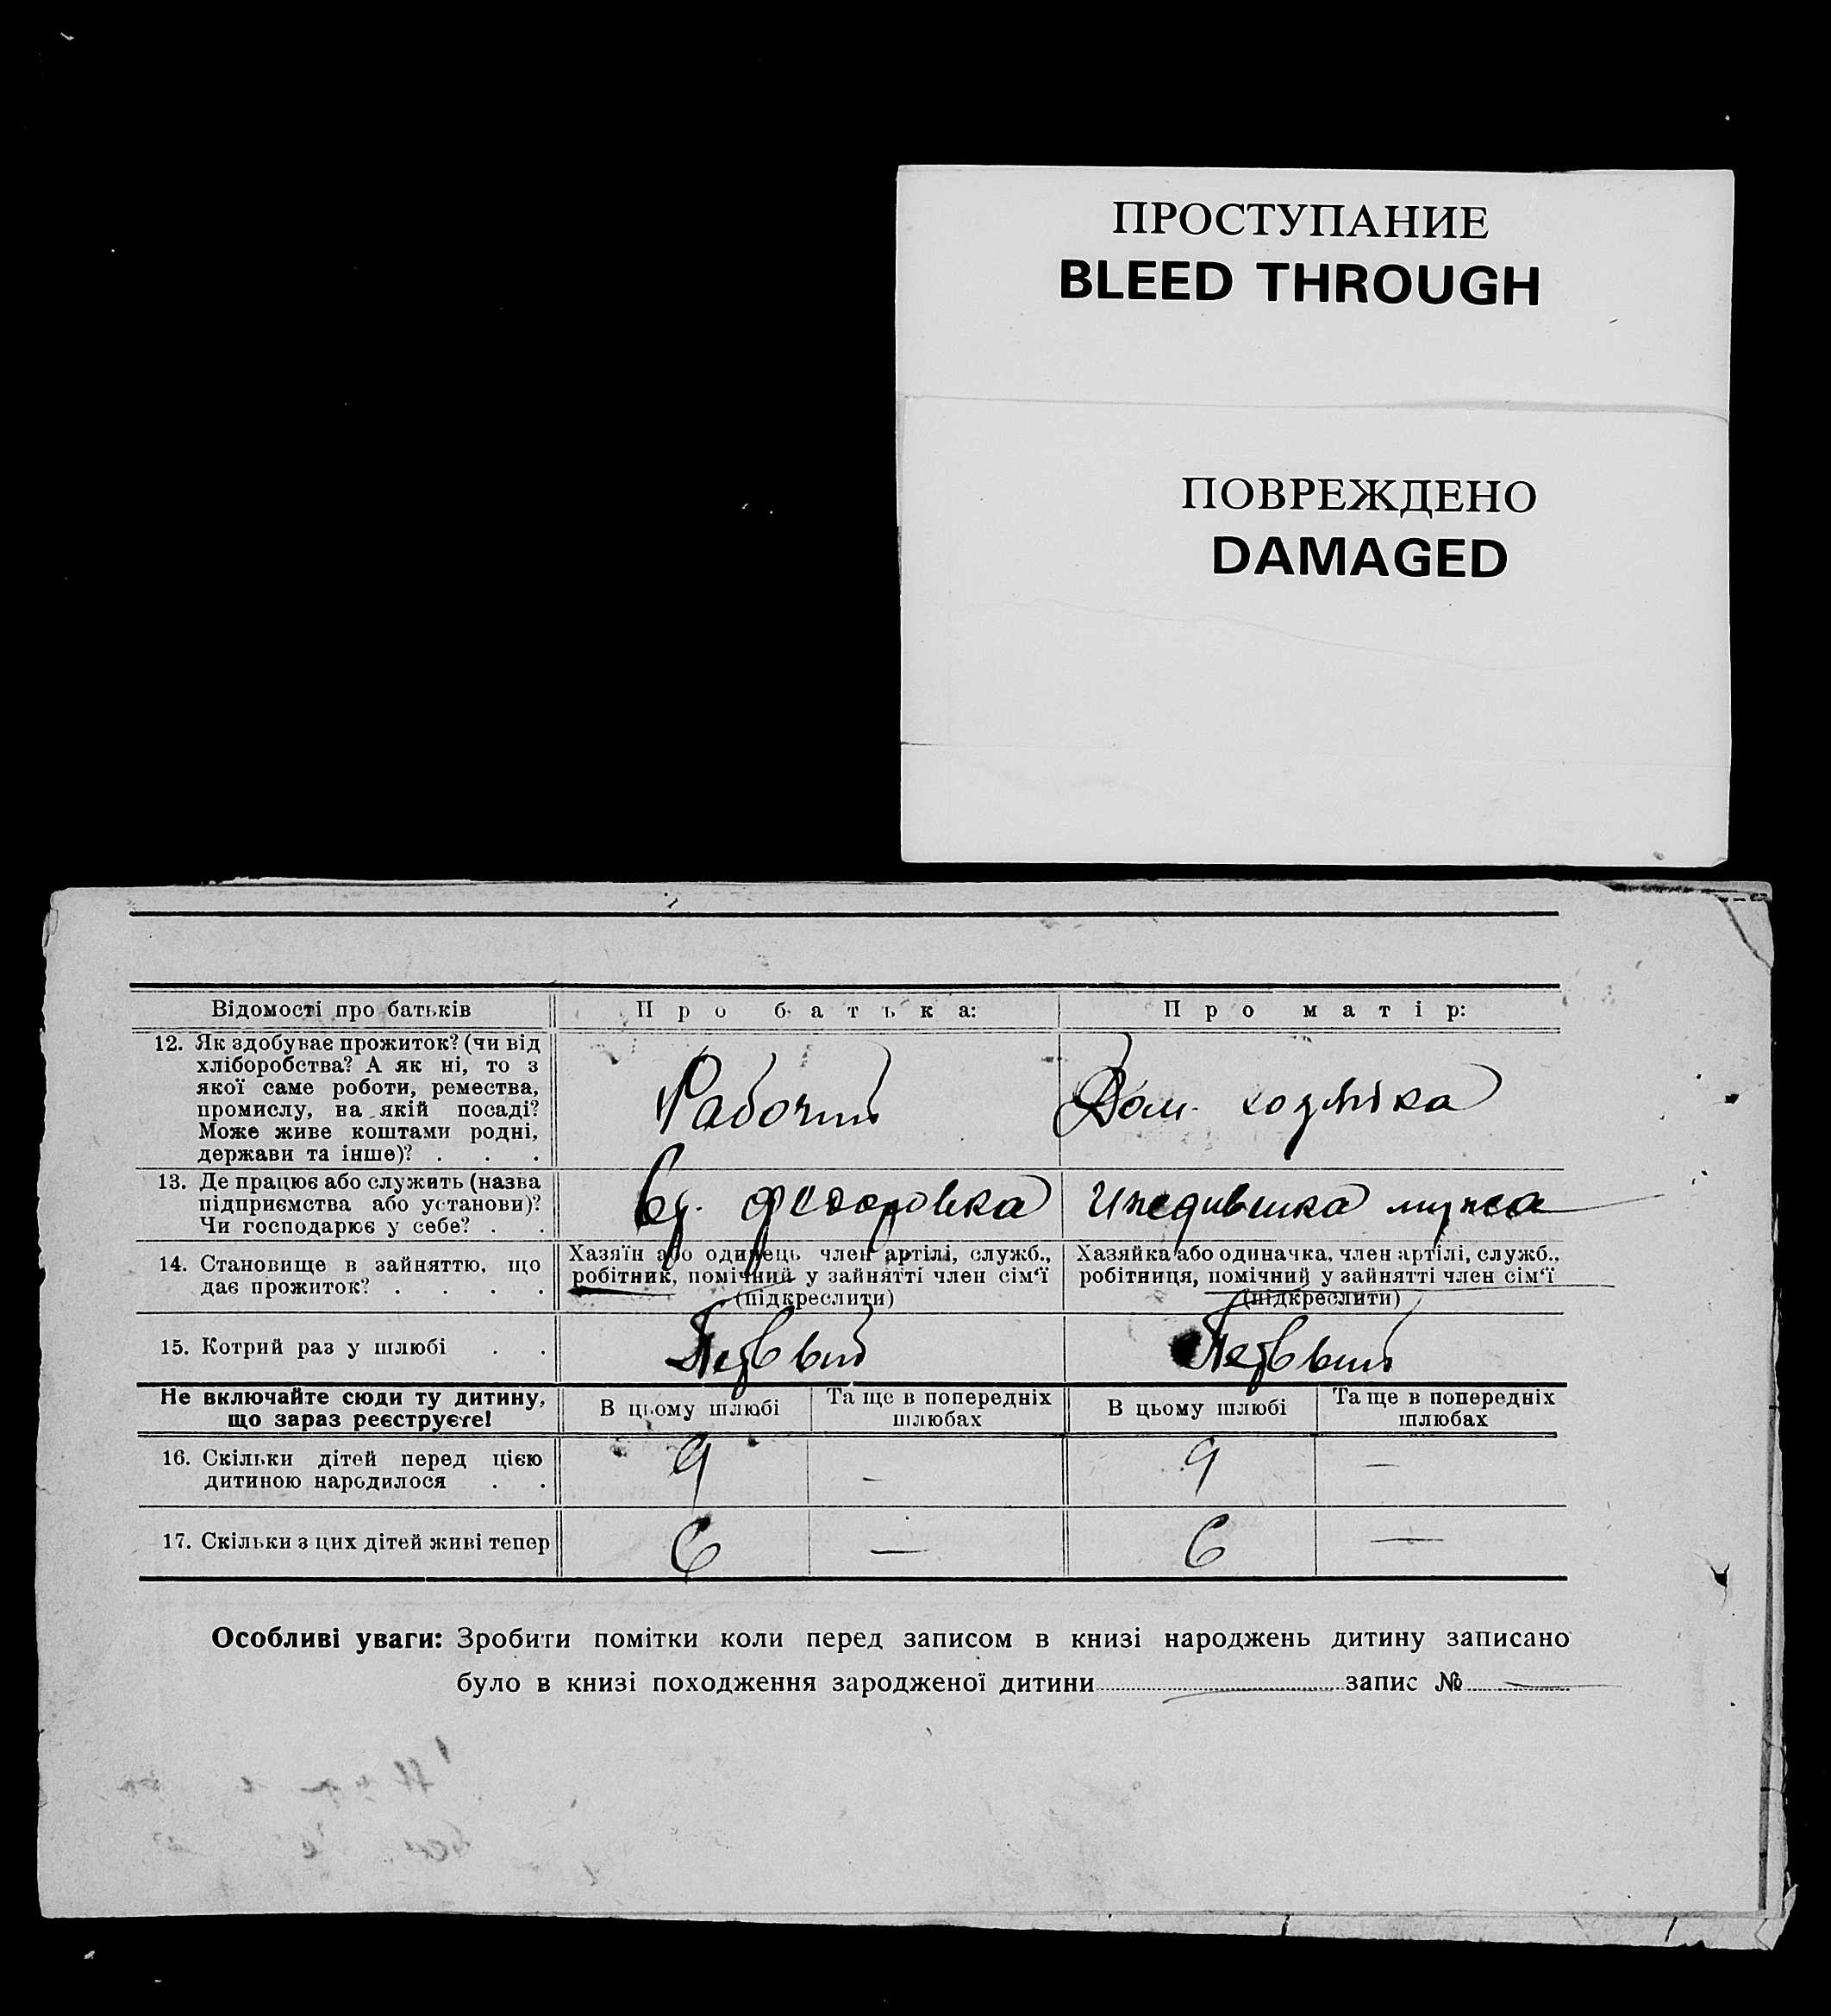 ПРОСТУПАНИЕ
BLEED THROUGH
ПОВРЕЖДЕНО
DAMAGED
Відомості про батьків
Про батька:
Про матір:
12. Як здобуває прожиток? (чи від
хліборобства? А як ні, то з
якої саме роботи, ремества,
промислу, на якій посаді?
Може живе коштами родні,
держави та інше)? . . .
Рабочий
Дом. хозяйка
13. Де працює або служить (назва
підприємства або установи)?
Чи господарює у себе? . .
федоровка
Иждивенка мужа
14. Становище в зайняттю, що
дає прожиток? . . . .
Хазяїн або одинець член артілі, служб.,
робітник, помічний у зайнятті член сім'ї
(підкреслити)
Хазяйка або одиначка, член артілі, служб.,
робітниця, помічний у зайнятті член сім'ї
(підкреслити)
15. Котрий раз у шлюбі . .
Первый
Первый
Не включайте сюди ту дитину,
що зараз реєструєте!
В цьому шлюбі
Та ще в попередніх
шлюбах
В цьому шлюбі
Та ще в попередніх
шлюбах
16. Скільки дітей перед цією
дитиною народилося . .
9 — 9 —
17. Скільки з цих дітей живі тепер
6 — 6 —
Особливі уваги: Зробити помітки коли перед записом в книзі народжень дитину записано
було в книзі походження зародженої дитини — запис № —